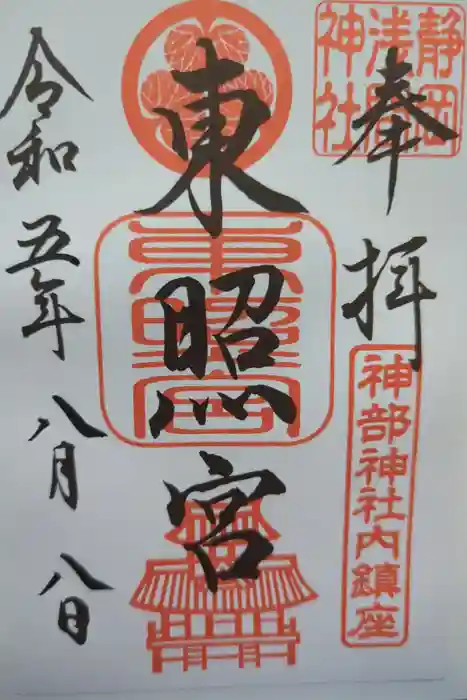 奉拝
静岡
浅間
神社
神部神社内鎮座
東照宮
東照宮
令和五年八月八日